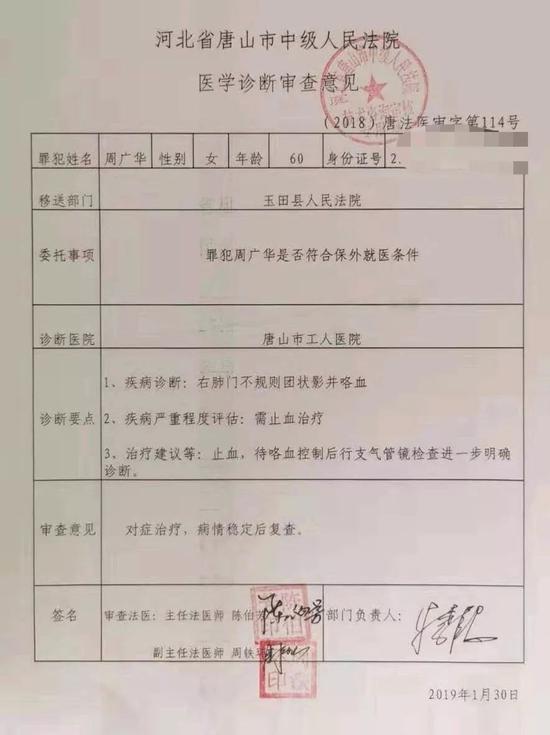 河北省唐山市中级人民法院
医学诊断审查意见
(2018)唐法医审字第114号
罪犯姓名 周广华 性别 女 年龄 60 身份证号 2.
移送部门 玉田县人民法院
委托事项 罪犯周广华是否符合保外就医条件
诊断医院 唐山市工人医院
诊断要点
1、疾病诊断：右肺门不规则团状影并咯血
2、疾病严重程度评估：需止血治疗
3、治疗建议等：止血，待咯血控制后行支气管镜检查进一步明确
诊断。
审查意见 对症治疗，病情稳定后复查。
签名 审查法医：主任法医师 陈伯 部门负责人：
副主任法医师 周轶
2019年1月30日